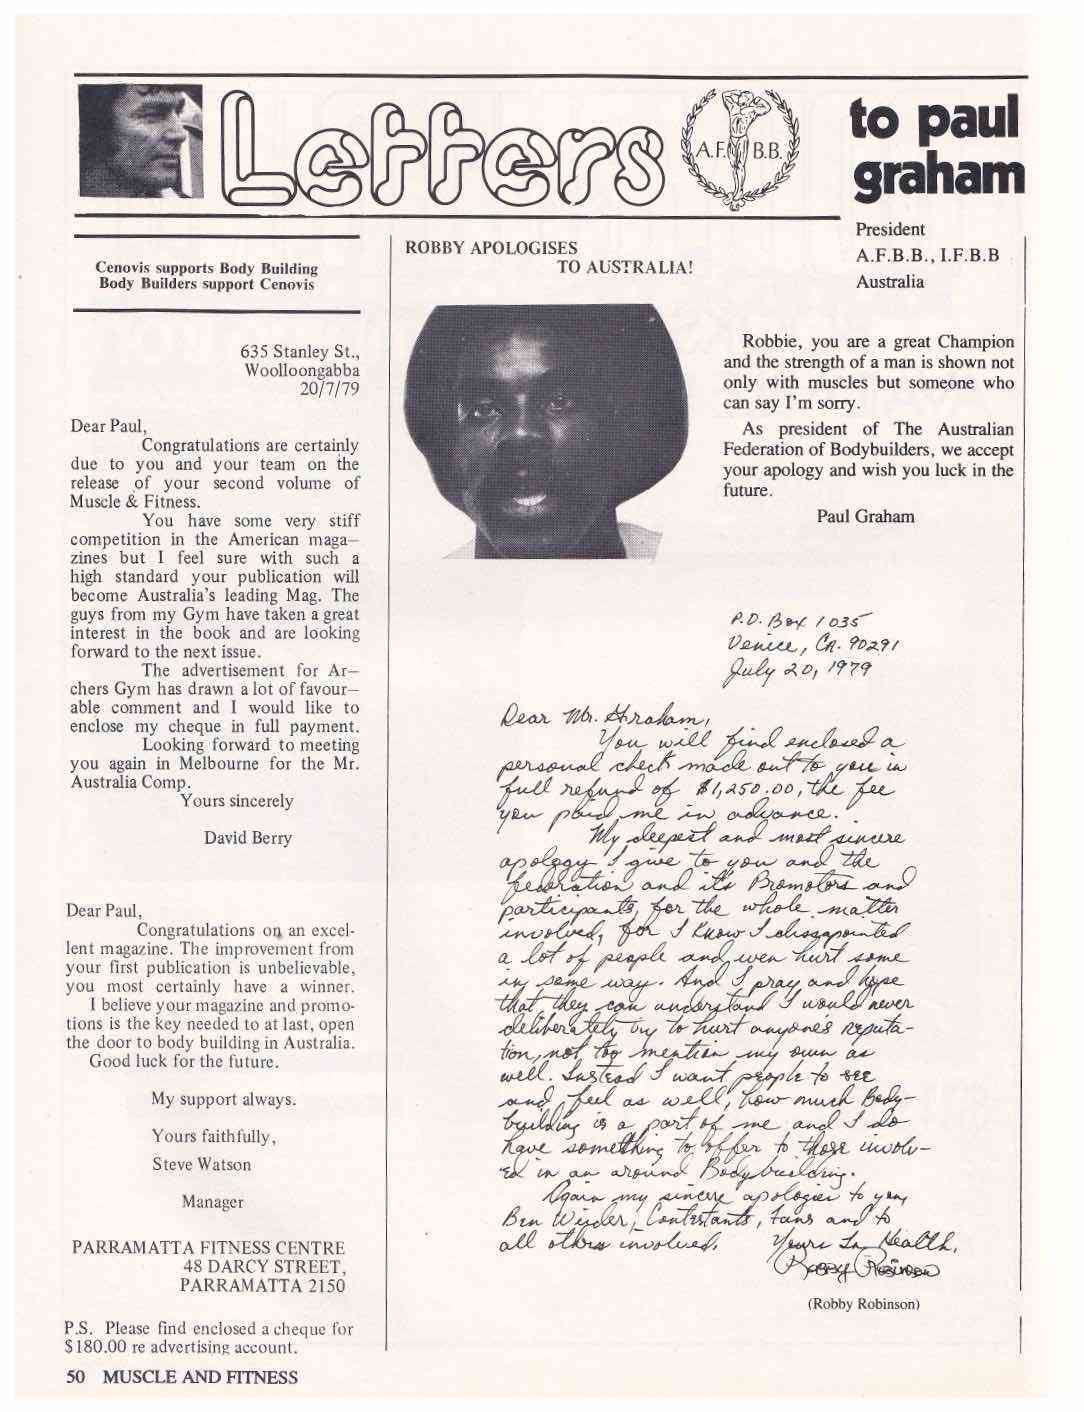 Letters
A.F. B.B.
to paul
graham
President
A.F.B.B., I.F.B.B
Australia
Cenovis supports Body Building
Body Builders support Cenovis
635 Stanley St.,
Woolloongabba
20/7/79
Dear Paul,
Congratulations are certainly
due to you and your team on the
release of your second volume of
Muscle & Fitness.
You have some very stiff
competition in the American maga—
zines but I feel sure with such a
high standard your publication will
become Australia's leading Mag. The
guys from my Gym have taken a great
interest in the book and are looking
forward to the next issue.
The advertisement for Ar—
chers Gym has drawn a lot of favour—
able comment and I would like to
enclose my cheque in full payment.
Looking forward to meeting
you again in Melbourne for the Mr.
Australia Comp.
Yours sincerely
David Berry
Dear Paul,
Congratulations on an excel-
lent magazine. The improvement from
your first publication is unbelievable,
you most certainly have a winner.
I believe your magazine and promo-
tions is the key needed to at last, open
the door to body building in Australia.
Good luck for the future.
My support always.
Yours faithfully,
Steve Watson
Manager
PARRAMATTA FITNESS CENTRE
48 DARCY STREET,
PARRAMATTA 2150
P.S. Please find enclosed a cheque for
$180.00 re advertising account.
ROBBY APOLOGISES
TO AUSTRALIA!
Robbie, you are a great Champion
and the strength of a man is shown not
only with muscles but someone who
can say I'm sorry.
As president of The Australian
Federation of Bodybuilders, we accept
your apology and wish you luck in the
future.
Paul Graham
P.O. Box 1035
Venice, CA. 90291
July 20, 1979
Dear Mr. Graham,
You will find enclosed a
personal check made out to you in
full refund of $1,250.00, the fee
you paid me in advance.
My deepest and most sincere
apology I give to you and the
federation and it's Promotors and
participants, for the whole matter
involved, for I know I disappointed
a lot of people and even hurt some
in some way. And I pray and hope
that they can understand I would never
deliberately try to hurt anyone's reputa-
tion, not too mention my own as
well. Instead I want people to see
and feel as well, how much Body-
building is a part of me and I do
have something to offer to those involv-
ed in an around Bodybuilding.
Again my sincere apologies to you,
Ben Wieder, Contestants, fans and to
all others involved. Yours In Health,
Robby Robinson
(Robby Robinson)
50 MUSCLE AND FITNESS